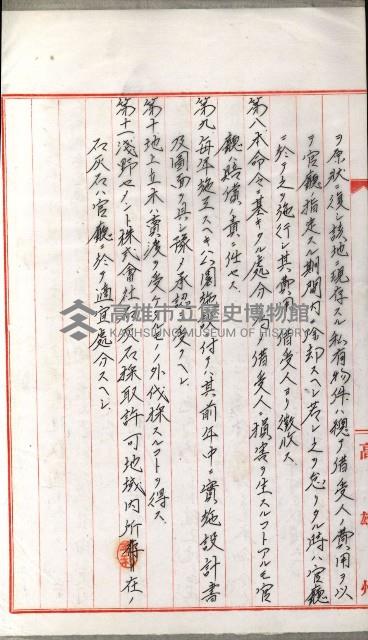 ヲ原状ニ復シ該地ニ現存スル私有物件ハ總テ借受人ノ費用ヲ以
テ官廳ノ指定スル期間内ニ除却スヘシ若シ之ヲ怠リタル時ハ官廳
ニ於テ之ヲ施行シ其費用ハ借受人ヨリ徴收ス
第八本命令ニ基キタル処分ノ為借受人ニ損害ヲ生スルコトアルモ官
廳ハ賠償ノ責ニ任セス
第九毎年施工スヘキ公園施設ニ付テハ其前年中ニ實施設計書
及圖面ヲ具シ豫メ承認ヲ受クヘシ
第十地上立木ハ賣渡ヲ受ケタルモノノ外伐採スルコトヲ得ス
第十一淺野セメント株式會社石灰石採取許可地域内所在ノ
石灰石ハ官廳ニ於テ適宜処分スヘシ
高雄州
高雄市立歷史博物館
KAOHSIUNG MUSEUM OF HISTORY